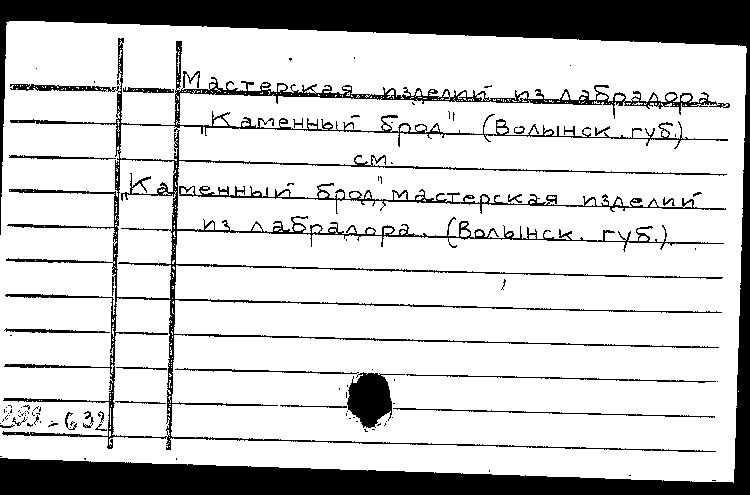 Мастерская изделий из лабрадора
„Каменный брод". (Волынск. губ.).
см.
„Каменный брод", мастерская изделий
из лабрадора. (Волынск. губ.).
299-632